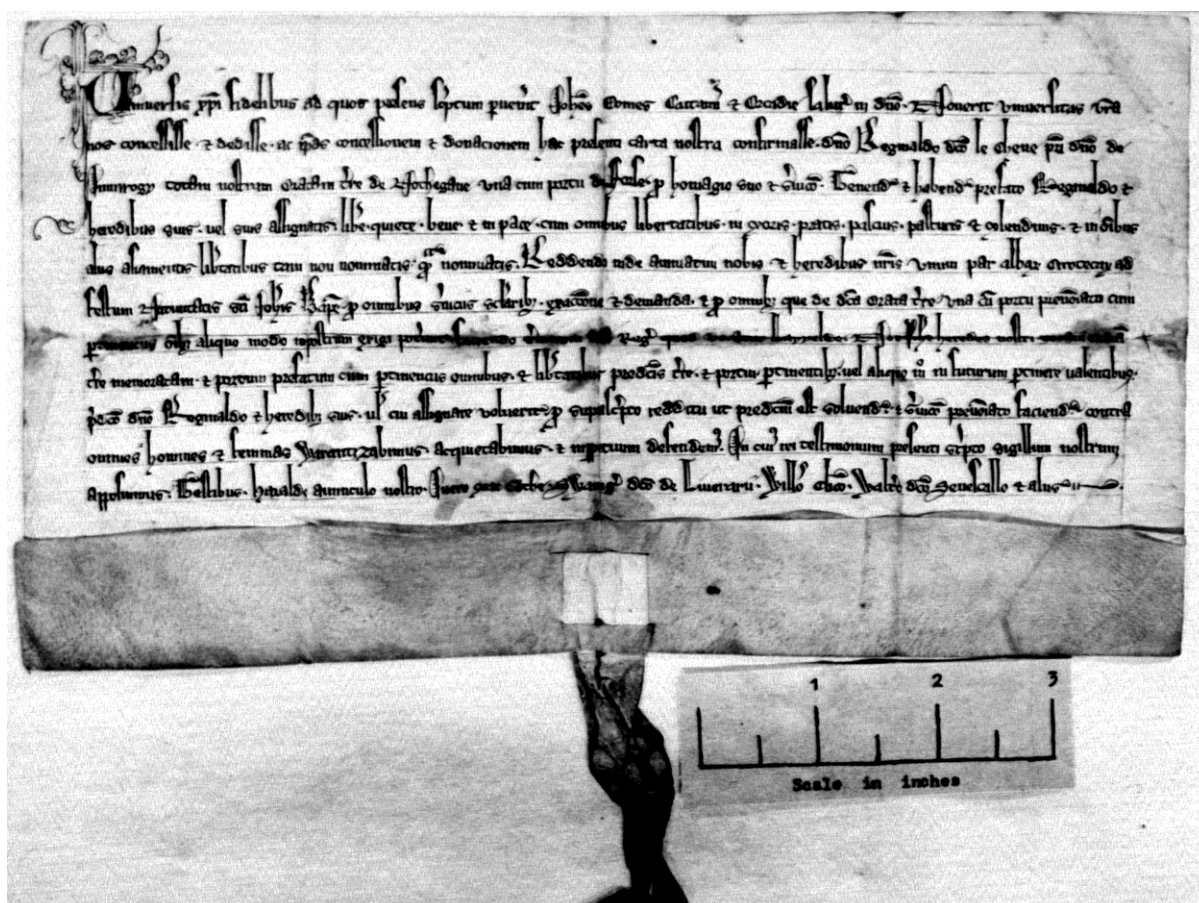 Universis xpi fidelibus ad quos presens scriptum pervenerit Johes Comes Catanie & Orcadie salutem in dno. Noverit universitas vra
nos concessisse & dedisse ac concessionem & donacionem hac presenti carta nostra confirmasse dno Reginaldo dco le chene pri dno de
totam nostram oratam tre de Nothegane una cum portu de p homagio suo & svico. Tenend & habend prefato Reginaldo &
heredibus suis vel suis assignatis libe quiete bene & in pace cum omnibus libertatibus in moris pratis pascuis pasturis & & in omnibus
aliis libtatibus tam non nominatis qm nominatis. Reddendo inde annuatim nobis & heredibus nris unum par albar cirotecarum ad
festum Nativitatis sci Johis Bapte p omnibus sviciis sclarib exactione & demanda & p omnib que de dca orata tre una cu portu prenoiato cum
ptinenciis aliquo modo exigi heredes nostri
tre memoratam & portum prefatum cum ptinenciis omnibus & libtatibus prodcis tre & portui ptinentib vel aliquo mo in futurum ptinere valentibus
pdco dno Reginaldo & heredib suis vel cui assignare voluerit p supascpto redditu ut predictum est solvend & svico prenoiato faciend contra
omnes homines & feminas Warantizabimus acquietabimus & inppetuum defendem. In cui rei testimonium presenti scpto sigillum nostrum
apposuimus. Testibus havalde avunculo nostro de Willo clico Waltero dco Senescallo & aliis
1 2 3
Scale in inches